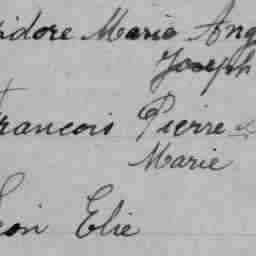 idore Marie Ang
Joseph
rancois Pierre
Marie
eon Elie